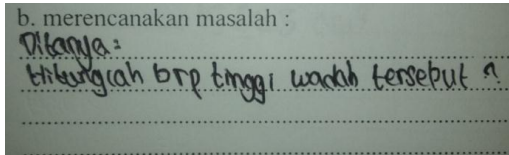 b. merencanakan masalah :
Ditanya :
Hitunglah brp tinggi wadah tersebut ?